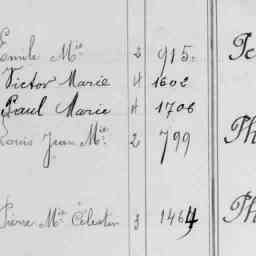 Emile Mie 2 915. Te
Victor Marie 4 1602
Paul Marie 4 1706
Louis Jean Mie 2 799 Ph
Pierre Mie Célestin 3 1464 Ph